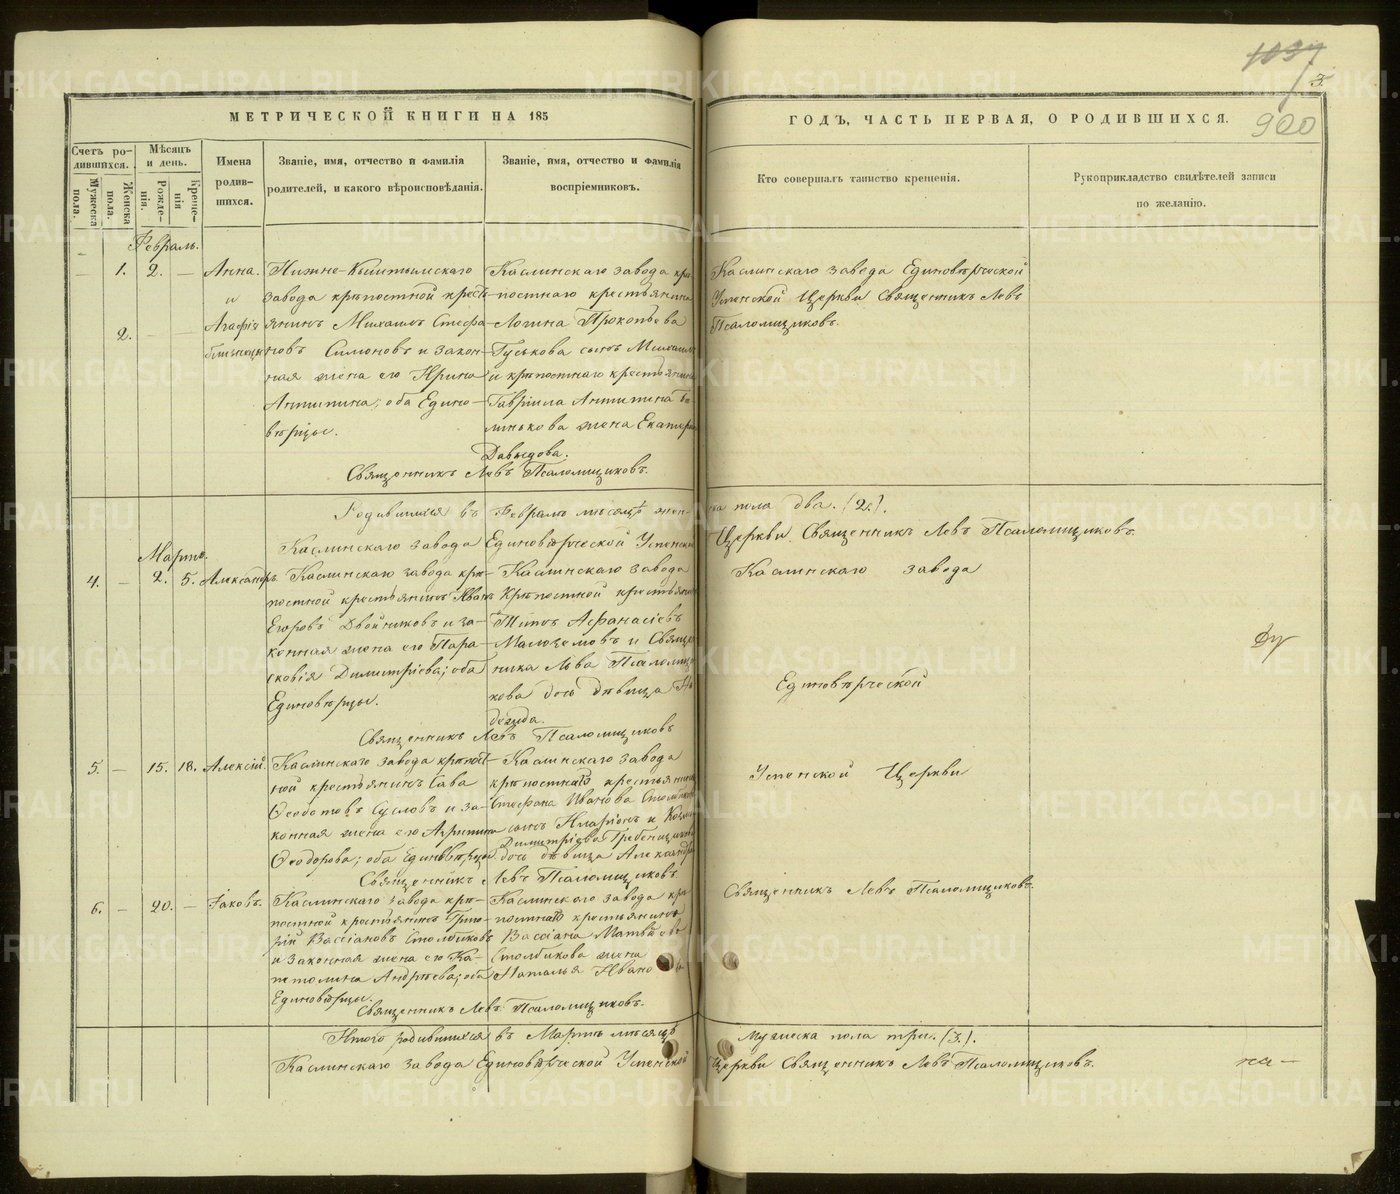 1037
3.
900
МЕТРИЧЕСКОЙ КНИГИ НА 185
ГОДЪ, ЧАСТЬ ПЕРВАЯ, О РОДИВШИХСЯ.
Счетъ родившихся.
Мужеска пола.
Женска пола.
Мѣсяцъ и день.
Рожденія.
Крещенія
Имена родившихся.
Званіе, имя, отчество и фамилія
родителей, и какого вѣроисповѣданія.
Званіе, имя, отчество и фамилія
воспріемниковъ.
Кто совершалъ таинство крещенія.
Рукоприкладство свидѣтелей записи
по желанію.
Февраль.
1. 2. — Анна.
и
2. Агафія
близнецы
Нижне-Кыштымскаго
завода крѣпостной кресть-
янинъ Михаилъ Стефа-
новъ Симоновъ и закон-
ная жена его Ирина
Антипина; оба Едино-
вѣрцы.
Каслинскаго завода крѣ-
постнаго крестьянина
Логина Прокопьева
Гуськова сынъ Михаилъ
и крѣпостнаго крестьянина
Гавріила Антипина
жена Екатерина
Давыдова.
Священникъ Левъ Псаломщиковъ.
Каслинскаго завода Единовѣрческой
Успенской Церкви Священникъ Левъ
Псаломщиковъ.
Родившихся въ Февралѣ мѣсяцѣ жен-
ска пола два. (2.).
Каслинскаго завода Единовѣрческой Успенской
Церкви Священникъ Левъ Псаломщиковъ.
Мартъ.
4. — 2. 5. Александръ.
Каслинскаго завода крѣ-
постной крестьянинъ Иванъ
Егоровъ Двойниковъ и за-
конная жена его Пара-
сковія Димитріева; оба
Единовѣрцы.
Каслинскаго завода
Крѣпостной крестьянинъ
Титъ Афанасіевъ
Малоземовъ и Священ-
ника Льва Псаломщи-
кова дочь дѣвица На-
дежда.
Священникъ Левъ Псаломщиковъ
Каслинскаго завода
Единовѣрческой
Успенской Церкви
Священникъ Левъ Псаломщиковъ.
5. — 15. 18. Алексій.
Каслинскаго завода крѣпост-
ной крестьянинъ Сава
Ѳедотовъ Сусловъ и за-
конная жена его Агрипина
Ѳеодорова; оба Единовѣрцы
Каслинскаго завода
крѣпостнаго крестьянина
Стефана Иванова
сынъ Иларіонъ и
Димитріева Гребенщикова
дочь дѣвица Александра
Священникъ Левъ Псаломщиковъ.
6. — 20. — Іаковъ.
Каслинскаго завода крѣ-
постной крестьянинъ Григо-
рій Вассіановъ Столбиковъ
и законная жена его Ка-
питолина Андрѣева; оба
Единовѣрцы.
Каслинскаго завода крѣ-
постнаго крестьянина
Вассіана Матвѣева
Столбикова жена
Наталья Иванова
Священникъ Левъ Псаломщиковъ.
Итого родившихся въ Мартѣ мѣсяцѣ
Мужеска пола три. (3.).
Каслинскаго завода Единовѣрческой Успенской
Церкви Священникъ Левъ Псаломщиковъ.
на —
METRIKI.GASO-URAL.RU